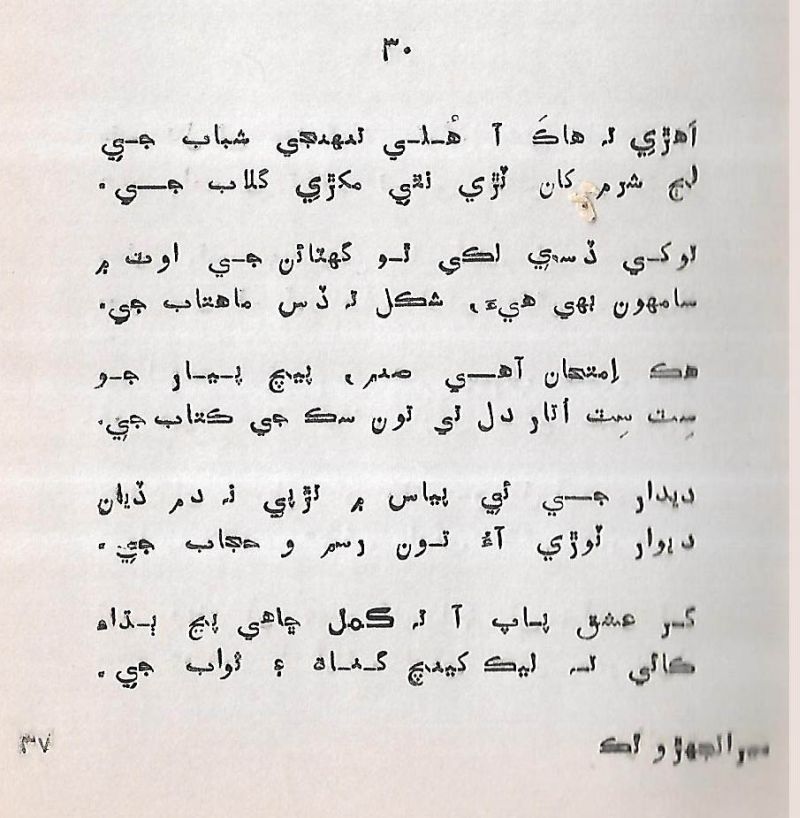 ٣٠
اَهڙِي نہ هاڪَ آ هُلي تنهنجي شباب جي
لڄ شرم کان ٽڙي نٿي مکڙي گلاب جي.
لوڪي ڏسي لڪي ٿو گهٽائن جي اوٽ ۾
سامهون ٻهي هيءَ، شڪل تہ ڏس ماهتاب جي.
هڪ اِمتحان آهي صنم، پيچ پيار جو
سِٽ سِٽ اُتار دل تي تون سڪ جي ڪتاب جي.
ديدار جي ئي پياس ۾ تڙپي نہ دم ڏيان
ديوار ٽوڙي آءُ تون رسم و حجاب جي.
گر عشق پاپ آ تہ ڪمل چاهي پڇ ٻڌاء
ڪائي نہ ليڪ کينچ گناھ ۽ ثواب جي.
٣٧